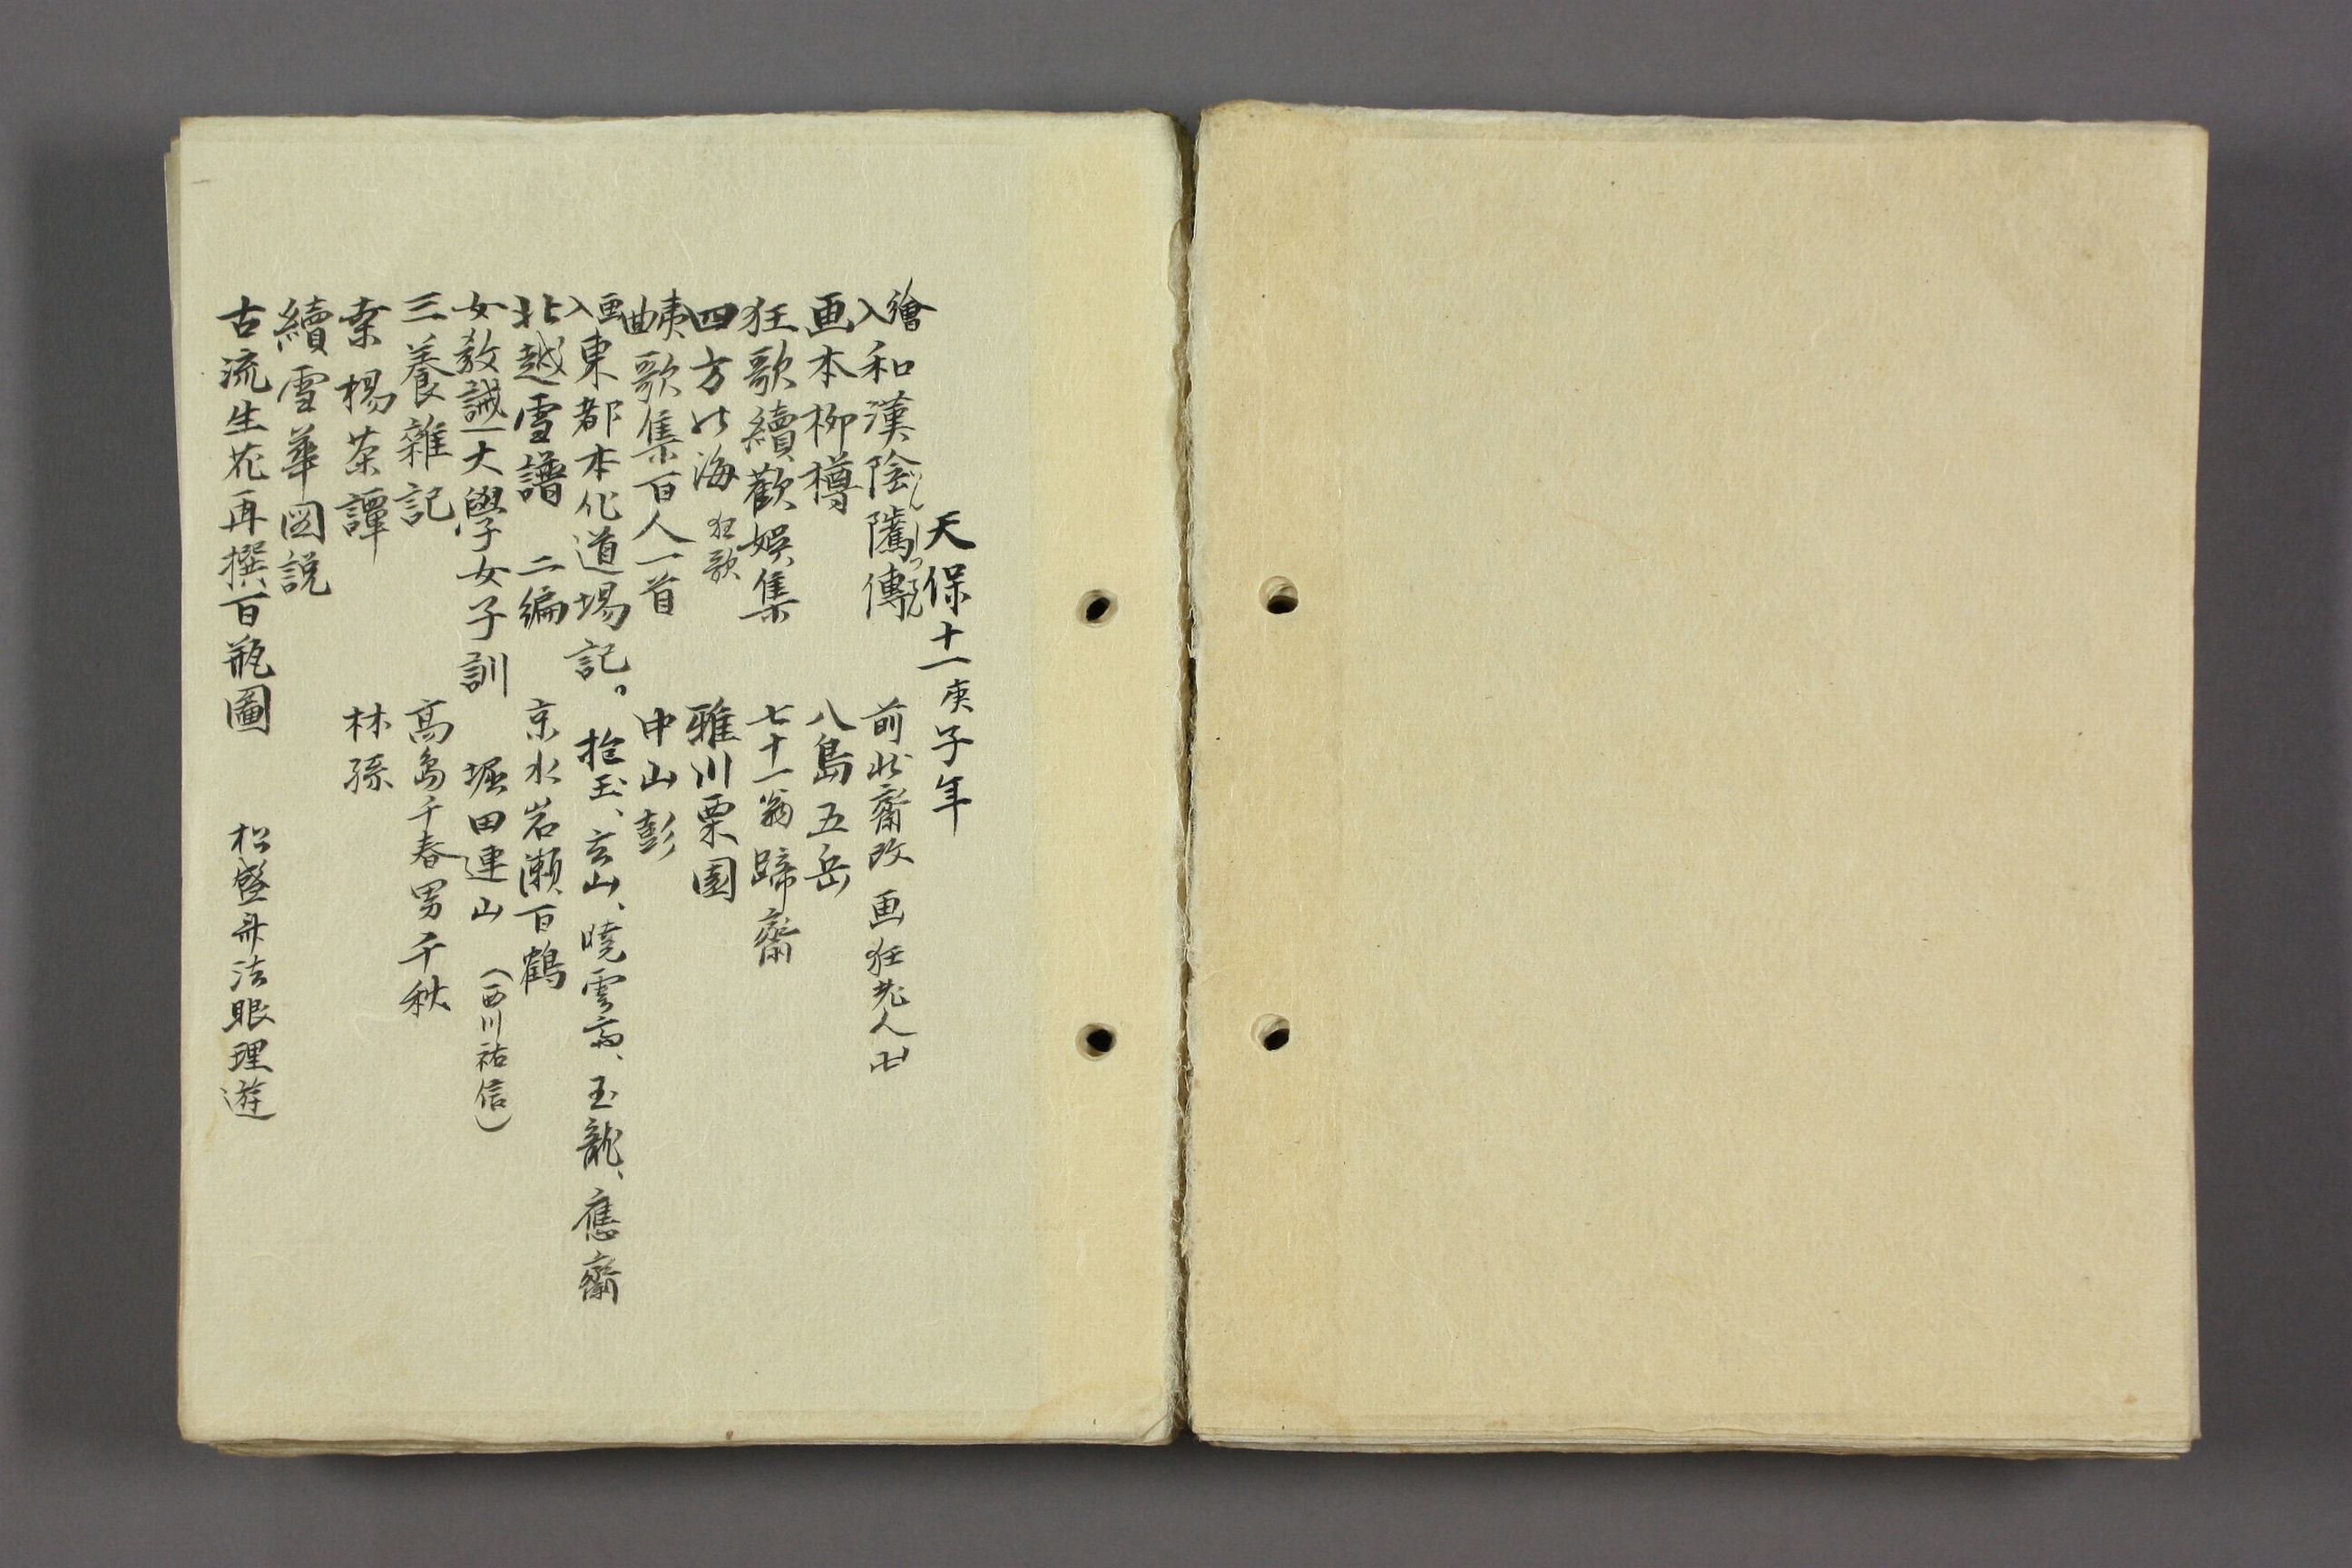 天保十一庚子年
繪入和漢陰隲傳 いんしつでん 前北齋改画狂老人卍
画本柳樽 八島五岳
狂歌續歡娯集 七十一翁蹄齋
四方北海 狂歌 雅川栗園
夷曲歌集百人一首 中山彭
画入東都本化道場記。 抱玉、玄山、暁雲斎、玉龍、應齋
北越雪譜 二編 京水岩瀬百鶴
女教誡大學女子訓 堀田連山 (西川祐信)
三養雜記 高島千春男千秋
楊茶譚 林孫
續雪華図説
古流生花再撰百瓶圖 松盛斎法眼理遊